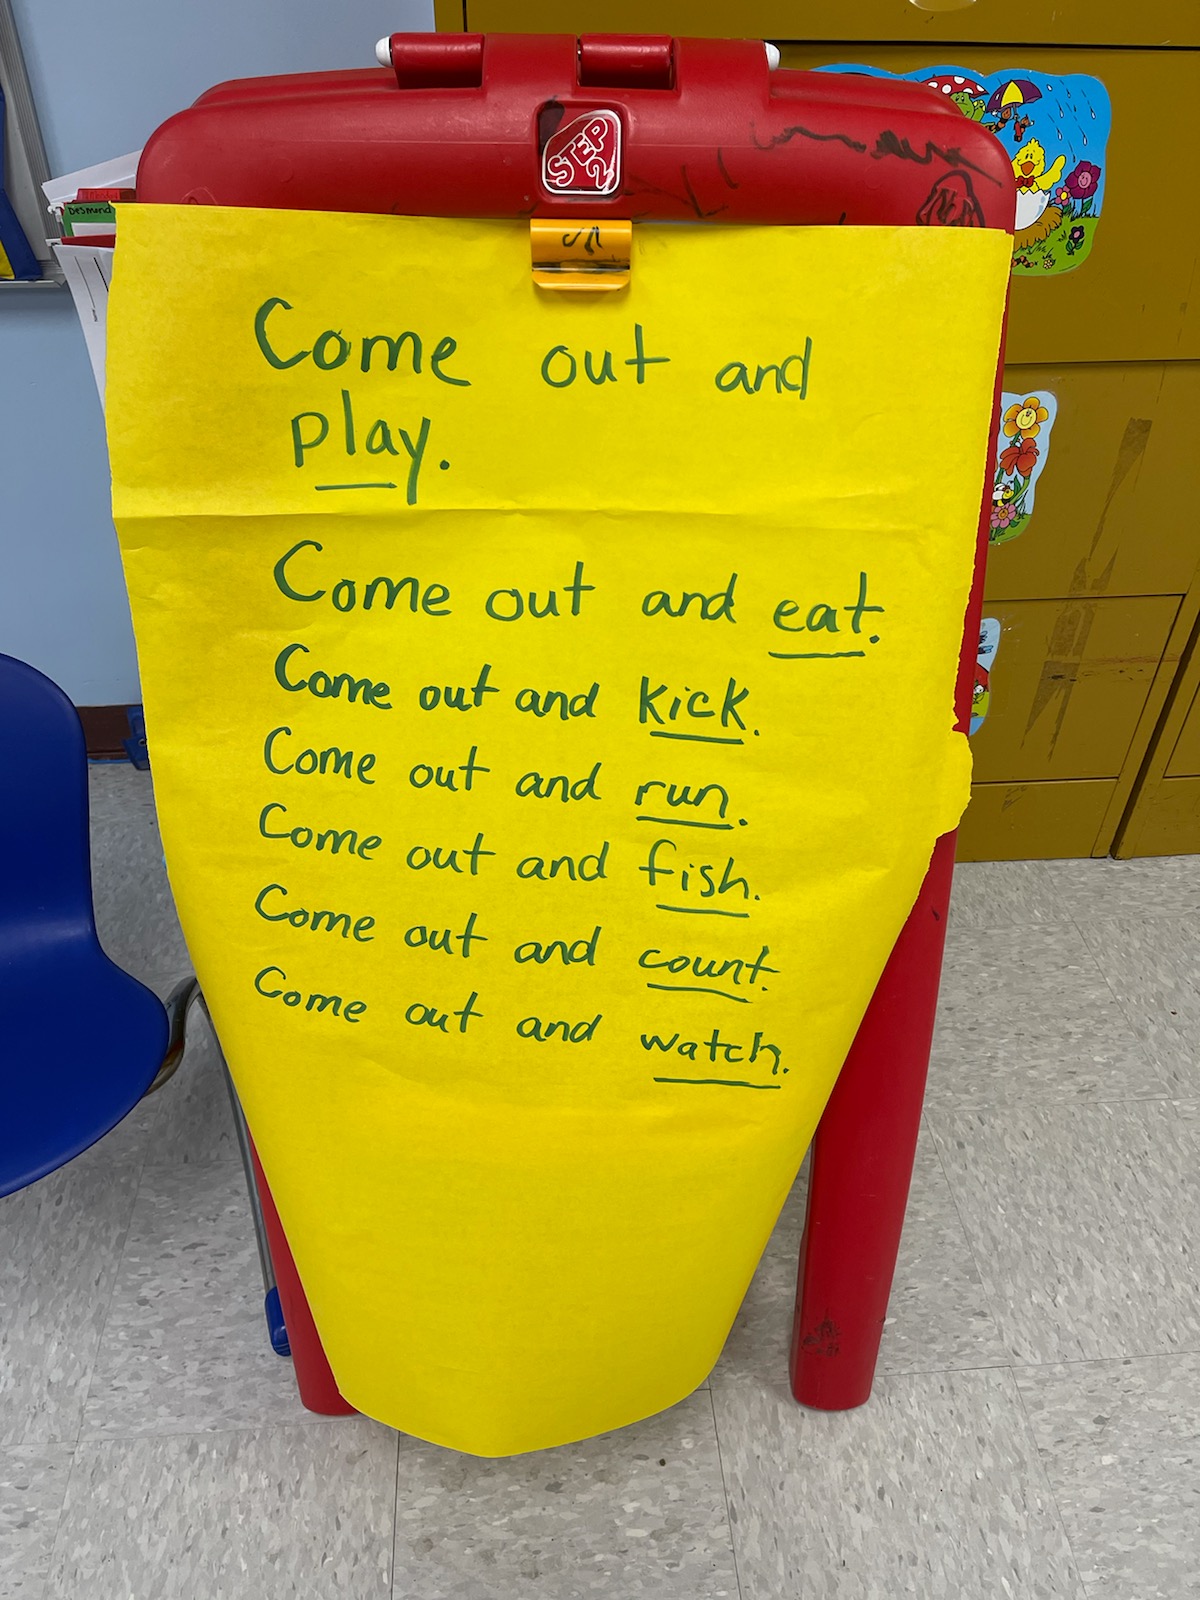 STEP
2
Desmond
Come out and
play.
Come out and eat.
Come out and kick.
Come out and run.
Come out and fish.
Come out and count.
Come out and watch.